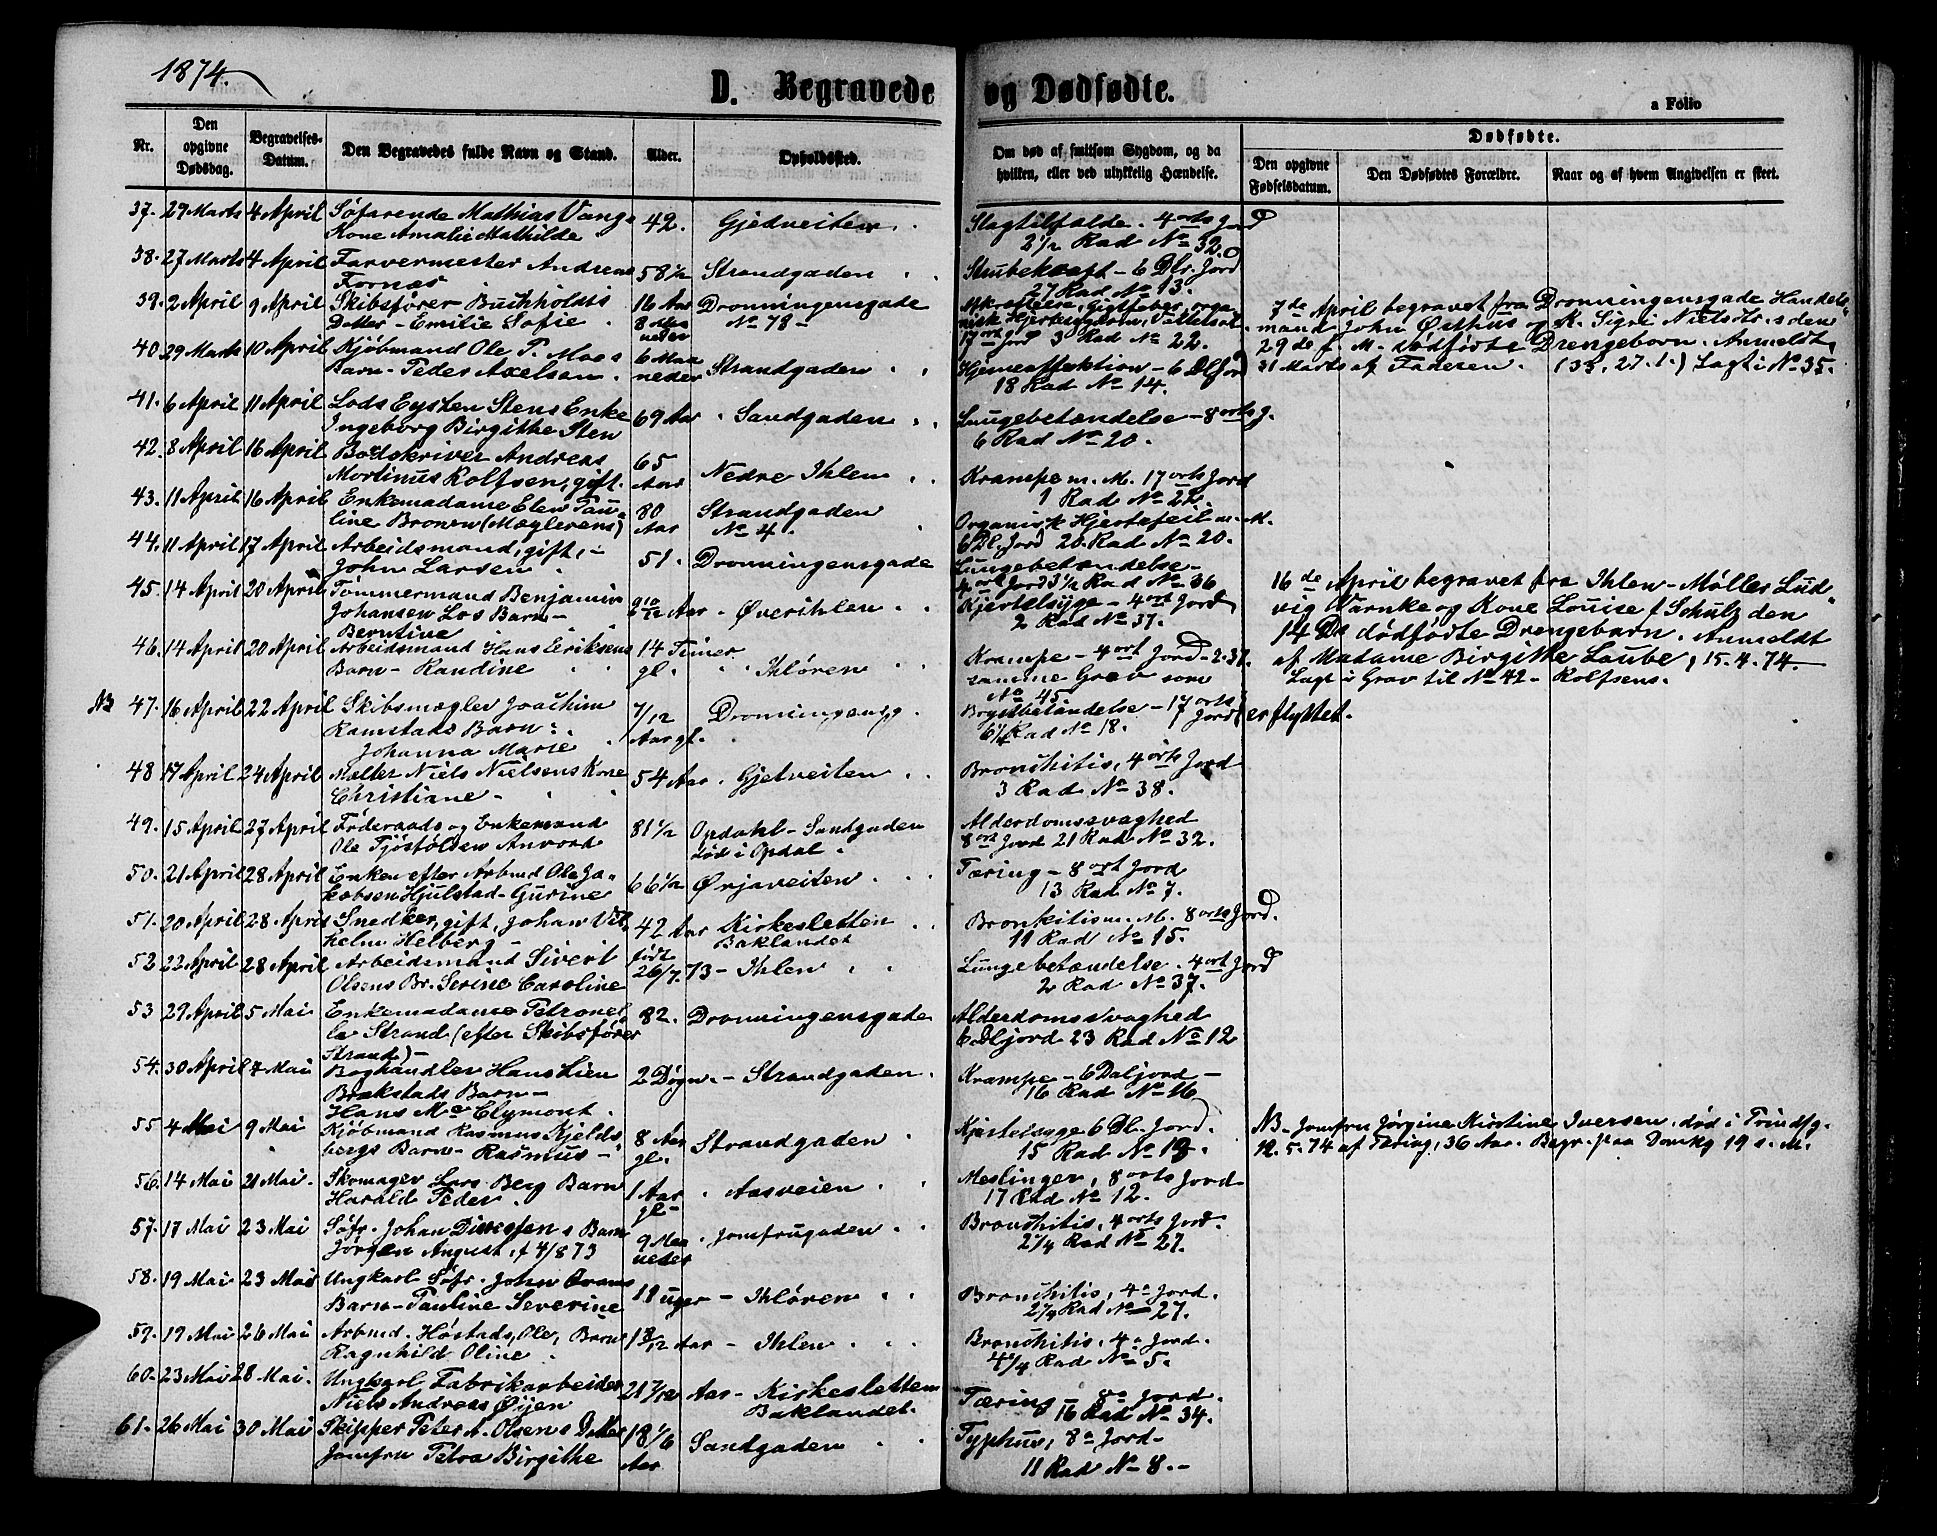 1874.
D. Begravede og Dødfødte.
a Folio
Nr.
Den opgivne Dødsdag.
Begravelses-Datum.
Den Begravedes fulde Navn og Stand.
Alder.
Opholdssted.
Om død af smitsom Sygdom, og da hvilken, eller ved ulykkelig Hændelse.
Dødfødte.
Den opgivne Fødselsdatum.
Den Dødfødtes Forældre.
Naar og af hvem Angivelsen er skeet.
37. 29 Marts 4 April Søfarende Mathias Vangs 42. Gjedveiten Slagtilfælde. 4 orts Jord
Kone Amalie Mathilde 2 1/2 Rad No 32.
38. 27 Marts 4 April Farvermester Andreas 58 1/2 Strandgaden Strubekræft - 6 Dlr. Jord
Fornæs 27 Rad No 13.
39. 2 April 9 April Skibsfører Buchholdts 16 Aar Dronningensgade
Datter - Emilie Sofie 8 Maaneder No 78 -
17 ort Jord 3 Rad No 22.
7de April begravet fra Dronningensgade Handels
mand John Østhus og K. Sigri Nielsdr. s den
29de f. M. dødfødte Drengebarn. Anmeldt
31 Marts af Faderen. (35. 27. 1.) Lagt i No 35.
40 29 Marts 10 April Kjøbmand Ole P. Moes 6 Maaneder Strandgaden Hjerneaffektion - 6 Dl jord
Barn - Peder Axelsen. 18 Rad No 14.
41. 6 April 11 April Lods Eysten Stens Enke 69 Aar Sandgaden Lungebetændelse - 8 orts J.
Ingeborg Birgitte Sten 6 Rad No 20.
42. 8 April 16 April Bødskriver Andreas 65 Aar Nedre Ihlen Krampe m. M. 17 orts Jord
Mortinus Rolfsen, gift. 1 Rad No 22.
43. 11 April 16 April Enkemadame Elen Pau- 80 Aar Strandgaden No 4 Organisk Hjertefeil m. M.
line Brouen (Mæglerens) 6 Dl. Jord 20 Rad No 20.
44. 11 April 17 April Arbeidsmand, gift, - 51. Dronningensgade Lungebetændelse -
John Larsen 4 ort Jord 3 1/2 Rad No 36
45. 14 April 20 April Tømmermand Benjamin 2 10/12 Aar - Øvre Ihlen Kjertelsyge - 4 ort Jord
Johansen Los Barn - 2 Rad No 37.
Berntine
16de April begravet fra Ihlen - Møller Lud-
vig Varnke og Kone Louise f. Schulz den
14 Ds dødfødte Drengebarn. Anmeldt
af Madame Birgitte Laube, 15. 4. 74.
Lagt i Grav til No 42 - Rolfsens.
46. 14 April 20 April Arbeidsmand Hans Eriksens 14 Timer gl. Ihløren Krampe - 4 ort Jord - 2. 37.
Barn - Randine samme Grav som
No 45
NB 47. 16 April 22 April Skibsmægler Joachim 7/12 Aar gl. Dronningensg. Brystbetændelse - 17 orts Jord (er flyttet.
Ramstads Barn 6 1/4 Rad No 18.
Johanna Marie
48 17 April 24 April Mælter Niels Nielsens Kone 54 Aar. Gjetveiten Bronchitis, 4 orts Jord
Christiane - 3 Rad No 38.
49. 15 April 27 April Føderaads og Enkemand 81 1/2 Opdahl - Sandgaden Alderdomssvaghed
Ole Tjøstølsen Anvord død i Opdal. 8 ort Jord 21 Rad No 32.
50. 21 April 28 April Enken efter Arbmd Ole Ja- 66 1/2 Ørjaveiten Tæring - 8 ort Jord
kobsen Hjulstad - Gurine 13 Rad No 7.
51. 20 April 28 April Snedker, gift, Johan Vil- 42 Aar Kirkesletten Bronkitis m. M. 8 orts Jord.
helm Helberg - Baklandet 11 Rad No 15.
52 22 April 28 April Arbeidsmand Sivert født 26/7. 73 - Ihlen Lungebetændelse. 4 ort Jord
Olsens Br. Serine Caroline 2 Rad No 37.
53 29 April 5 Mai Enkemadame Petronel- 82. Dronningensgade Alderdomssvaghed
la Strand (efter Skibsfører 6 Dl jord 23 Rad No 12
Strand) -
54. 30 April 7 Mai Boghandler Hans Lien 2 Døgn. - Strandgaden. Krampe - 6 Dal jord -
Brækstads Barn - 16 Rad No 16
Hans Mc Clymont.
55 4 Mai 9 Mai Kjøbmand Rasmus Kjelds- 8 Aar gl. Strandgaden Kjertelsyge 6 Dl. Jord.
bergs Barn - Rasmus - 15 Rad No 19.
NB. Jomfru Jørgine Kirstine Iversen. død i Trondhg.
12. 5. 74 af Tæring, 36 Aar. Begr. paa Domkg 19 s. M.
56. 14 Mai 21 Mai. Skomager Lars Berg Barn 1 Aar gl - Aasveien Meslinger, 8 orts Jord
Harald Peder. 17 Rad No 12.
57. 17 Mai 23 Mai Søfr. Johan Barn 9 Maaneder Jomfrugaden Bronchitis, 4 orts Jord.
Jørgen August, f 4/8 73 2 1/4 Rad No 27.
58. 19 Mai 23 Mai Ungkarl Søfr. John 11 uger - Ihløren Bronchitis, 4 o Jord.
Barn - Pauline Severine 2 1/4 Rad No 27.
59. 19 Mai 26 Mai Arbmd. Høstads, Ole, Barn 1 3/12 Aar - Ihlen Bronchitis. 4 o Jord.
Ragnhild Oline 4 1/4 Rad No 5.
60. 23 Mai 28 Mai. Ungkarl Fabrikarbeider 21 7/12 Aar - Kirkesletten Tæring - 8 o Jord.
Niels Andreas Øijen Baklandet. 16 Rad No 34.
61. 26 Mai 30 Mai Skipper Peter A. Olsens Datter 18 1/6 Aar Sandgaden Typhus, 8 o Jord -
Jomfru Petra Birgithe 11 Rad No 8. -